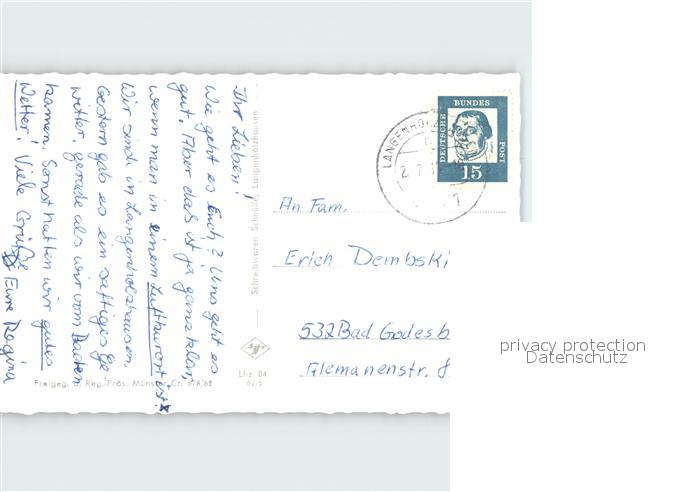 Ihr Lieben!
Wie geht es Euch? Uns geht es
gut. Aber das ist ja ganz klar,
wenn man in einem Luftkurort ist.
Wir sind in Langenholzhausen.
Gestern gab es ein saftiges Ge
witter, gerade als wir vom Baden
kamen. Sonst hatten wir gutes
Wetter! Viele Grüße
Eure Regina
Schreibwaren Langenholzhausen
Freigeg. d. Reg.-Präs. Münster Cr. 878/62
Lhz 04
67/5
DEUTSCHE
BUNDES
POST
15
LANGENHOLZ
2.7.
An Fam.
Erich Dembski
532 Bad Godesb
Alemanenstr. 8
privacy protection
Datenschutz